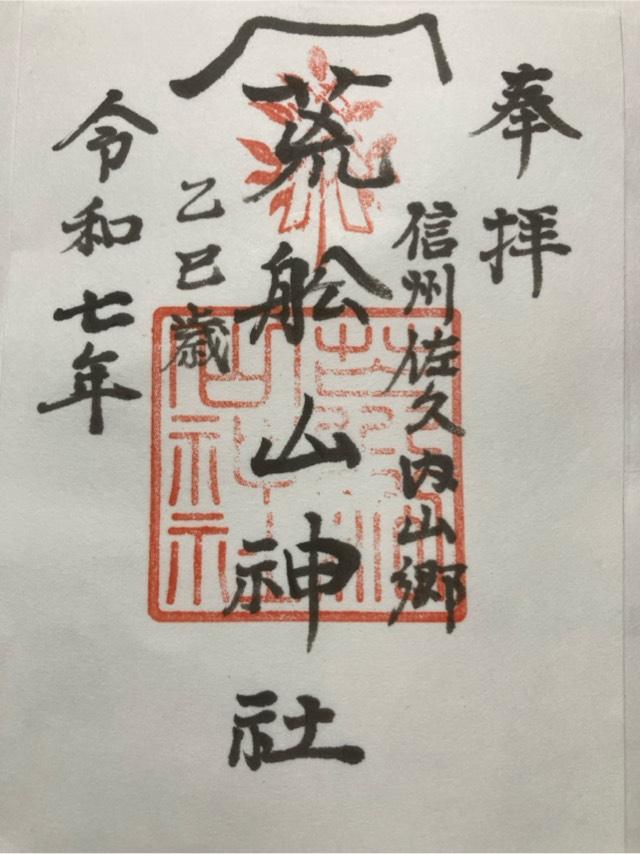 奉拝
信州佐久内山郷
荒舩山神社
乙巳歳
令和七年